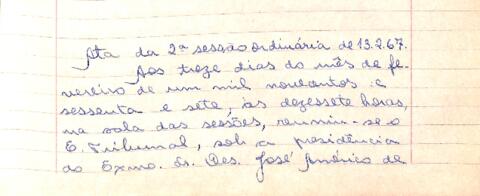 Ata da 2ª sessão ordinária de 13.2.67.
Aos treze dias do mês de fe-
vereiro de um mil novecentos e
sessenta e sete, às dezessete horas,
na sala das sessões, reuniu-se o
E. Tribunal, sob a presidência
do Exmo. Sr. Des. José Américo de